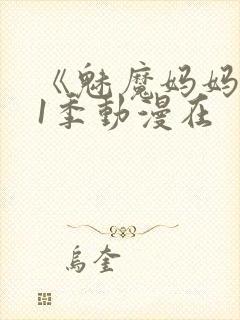 《魅魔妈妈
1季動漫在
烏奎